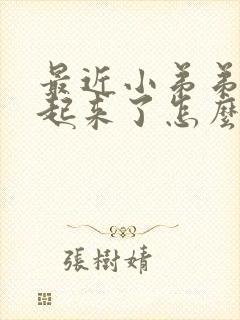 最近小弟弟
起来了怎麼
張樹婧